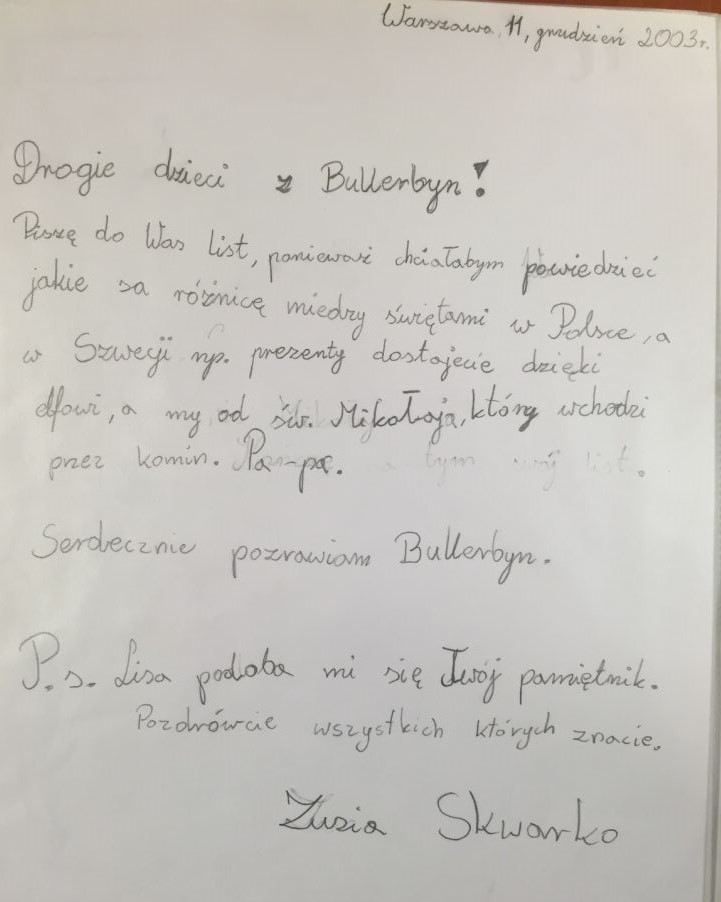 Warszawa, 11, grudzień 2003r.
Drogie dzieci z Bullerbyn!
Piszę do Was list, ponieważ chciałabym powiedzieć
jakie sa różnicę miedzy świętami w Polsce, a
w Szwecji np. prezenty dostajecie dzięki
elfowi, a my od św. Mikołaja, który wchodzi
przez komin. Pa-pa. tym list.
Serdecznie pozrawiam Bullerbyn.
P.s. Lisa podoba mi się Twój pamiętnik.
Pozdrówcie wszystkich których znacie.
Zuzia Skwarko